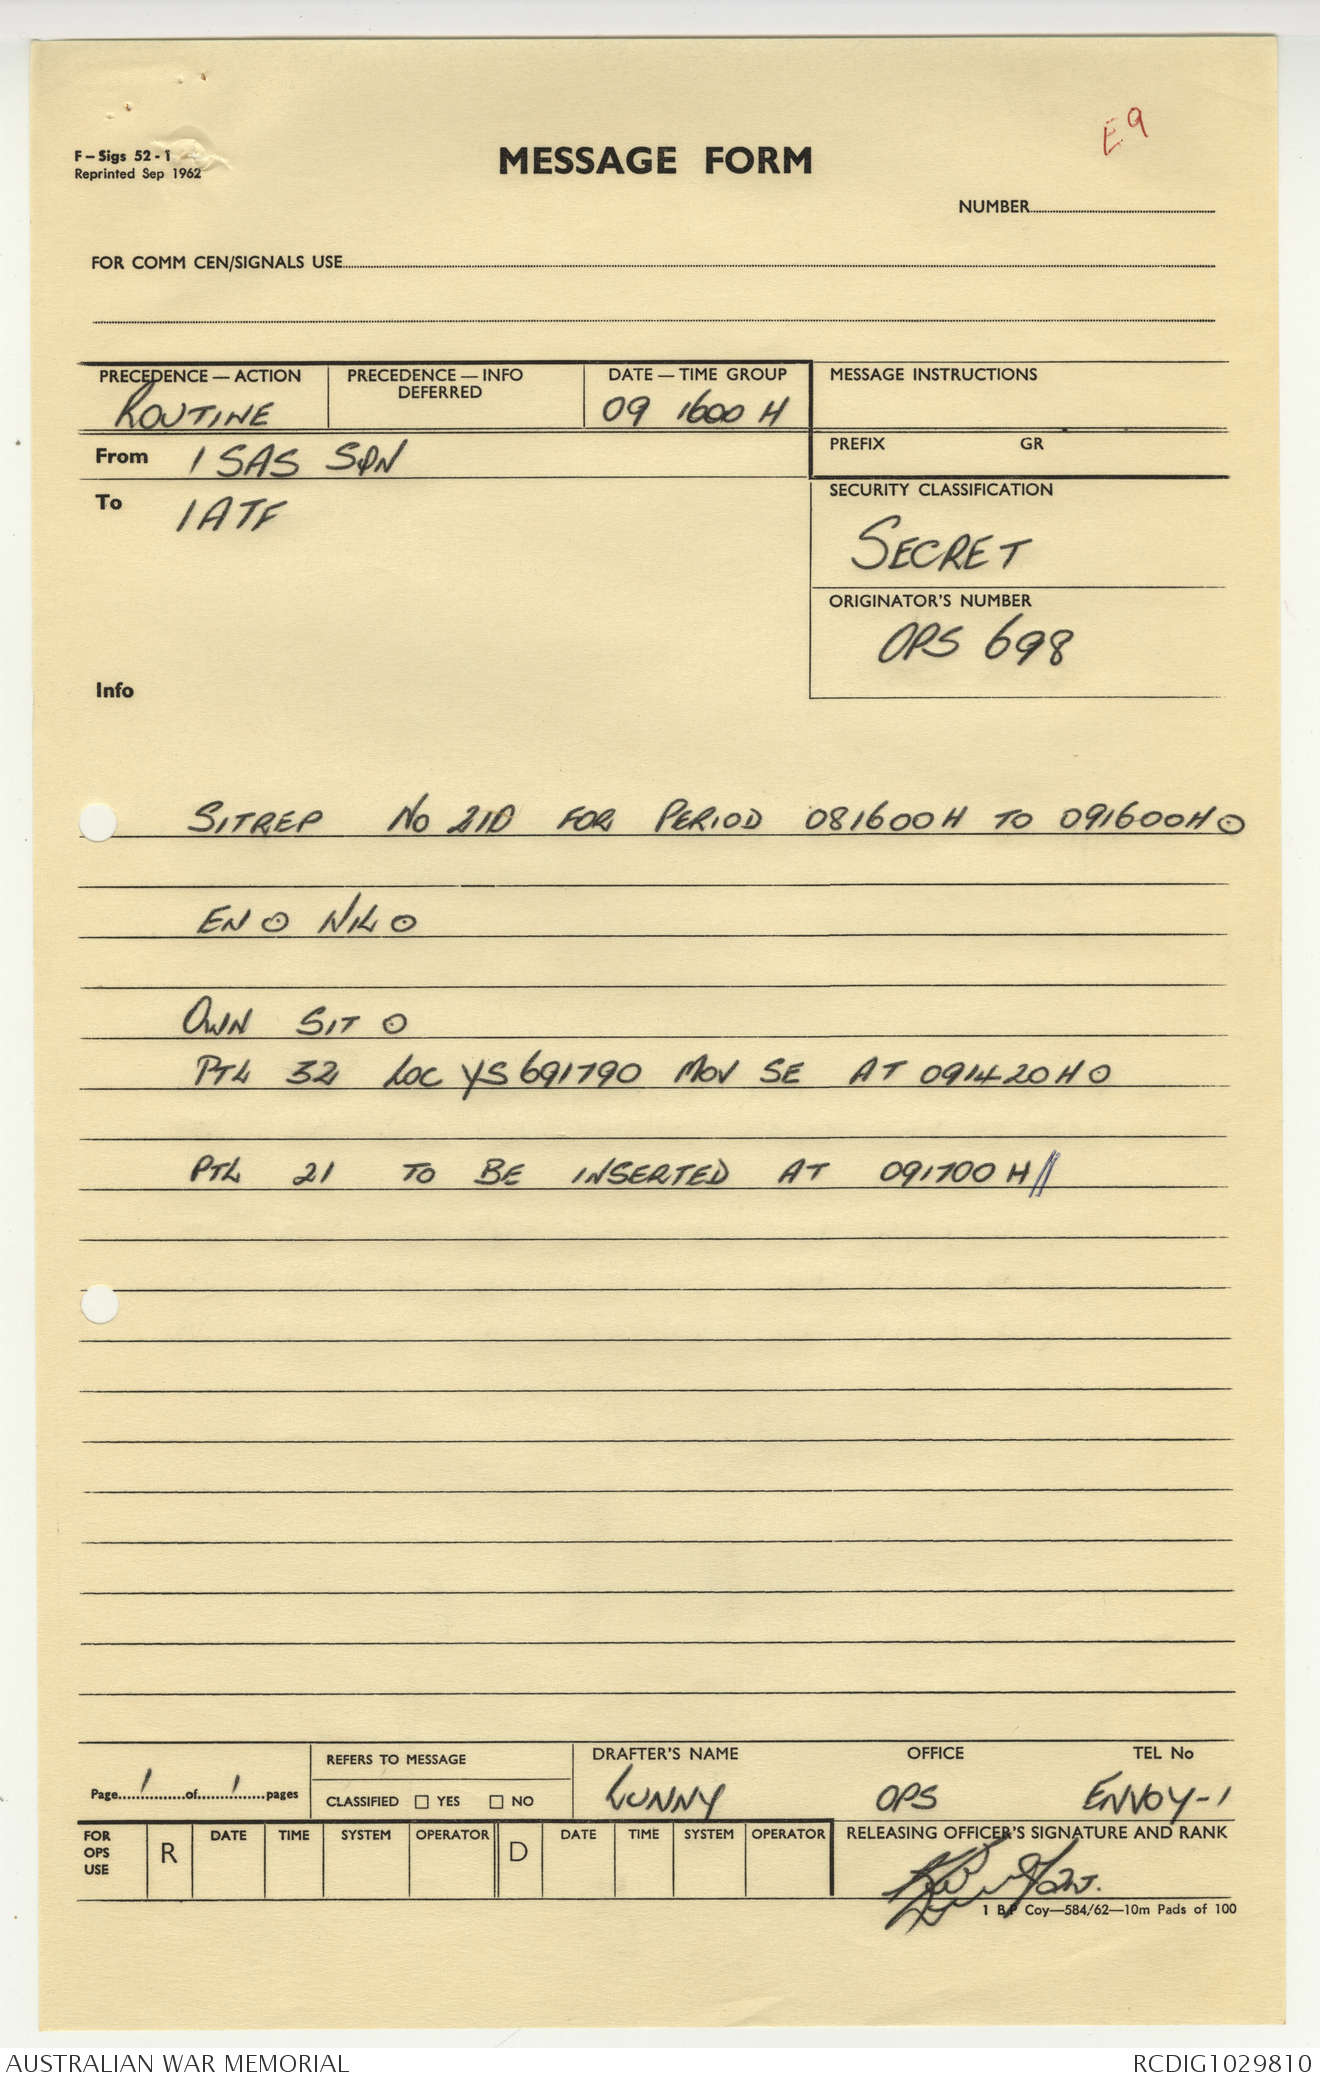 E9
F-Sigs 52-1
Reprinted Sep 1962
MESSAGE FORM
NUMBER
FOR COMM CEN/SIGNALS USE
PRECEDENCE — ACTION
ROUTINE
PRECEDENCE — INFO
DEFERRED
DATE — TIME GROUP
09 1600 H
MESSAGE INSTRUCTIONS
PREFIX GR
From 1 SAS SQN
To 1 ATF
SECURITY CLASSIFICATION
SECRET
ORIGINATOR'S NUMBER
OPS 698
Info
SITREP No 210 FOR PERIOD 081600H TO 091600H ⊙
EN ⊙ NIL ⊙
OWN SIT ⊙
PTL 32 LOC YS 691790 MOV SE AT 091420H ⊙
PTL 21 TO BE INSERTED AT 091700 H //
Page 1 of 1 pages
REFERS TO MESSAGE
CLASSIFIED □ YES □ NO
DRAFTER'S NAME
LUNNY
OFFICE
OPS
TEL No
ENVOY-1
FOR OPS USE
R DATE TIME SYSTEM OPERATOR
D DATE TIME SYSTEM OPERATOR
RELEASING OFFICER'S SIGNATURE AND RANK
1 BP Coy—584/62—10m Pads of 100
AUSTRALIAN WAR MEMORIAL
RCDIG1029810